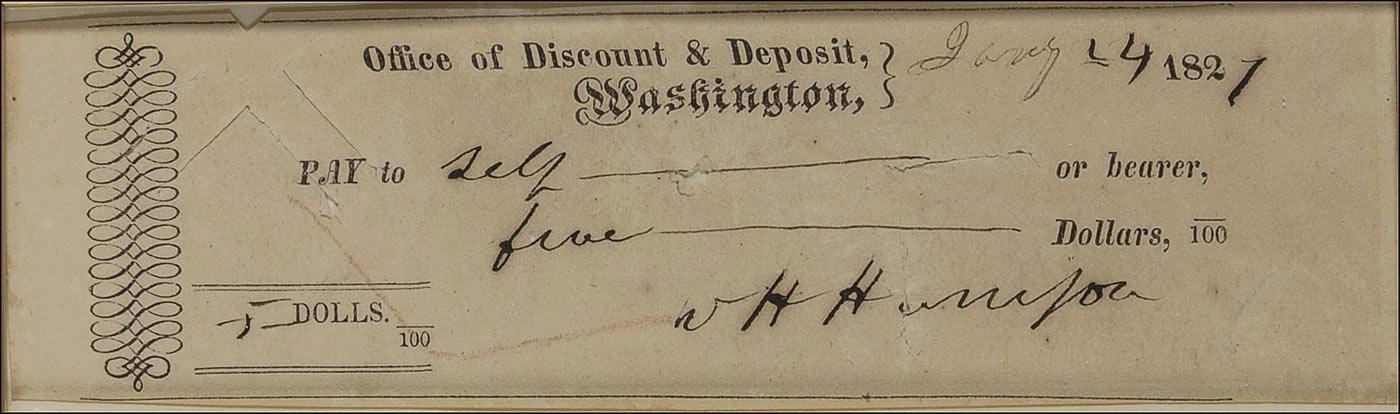 Office of Discount & Deposit, } Jany 24 1827
Washington,
PAY to self or bearer,
five Dollars, 100
5 DOLLS. 100
W H Harrison